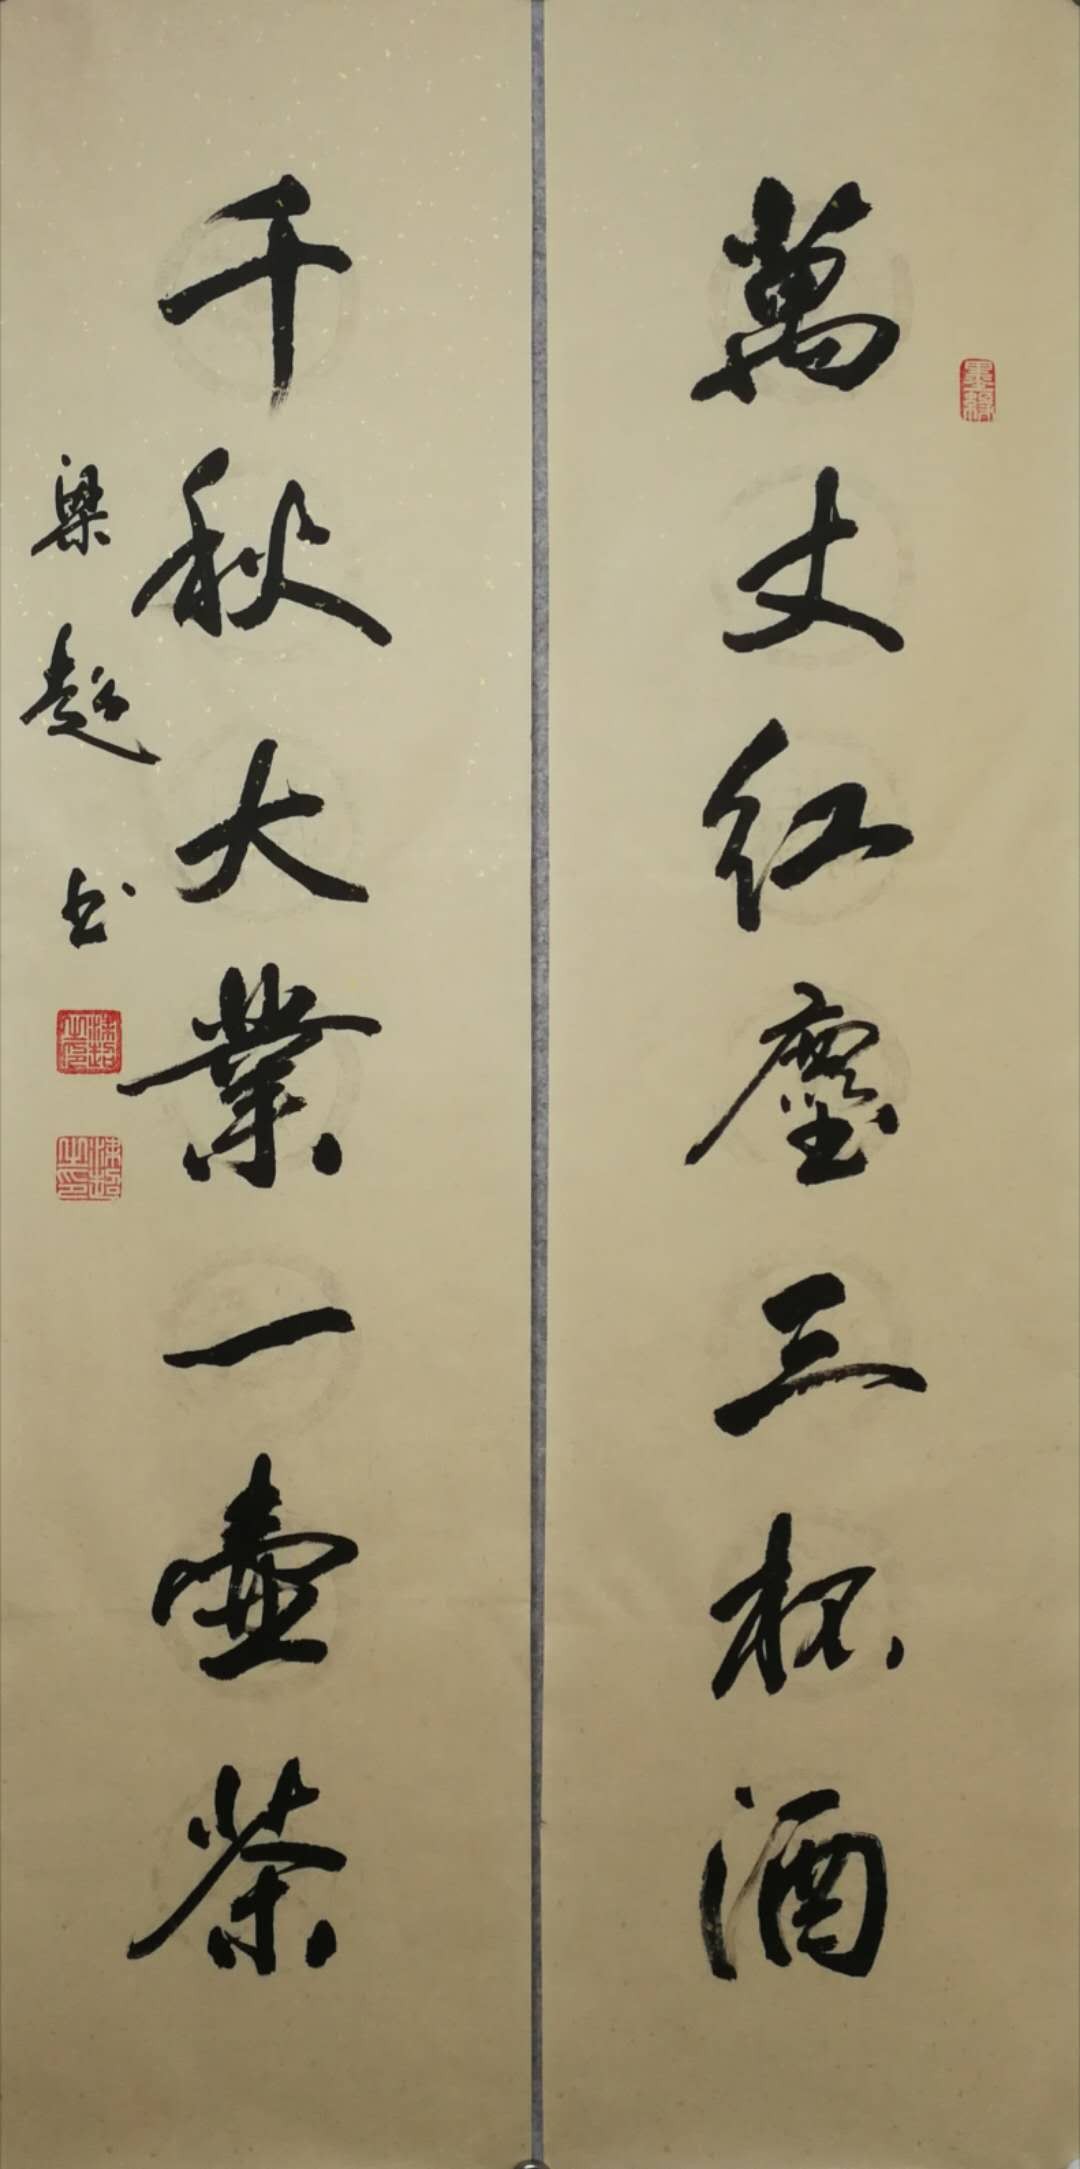 萬丈紅塵三杯酒
千秋大業一壺茶
梁超書
墨緣